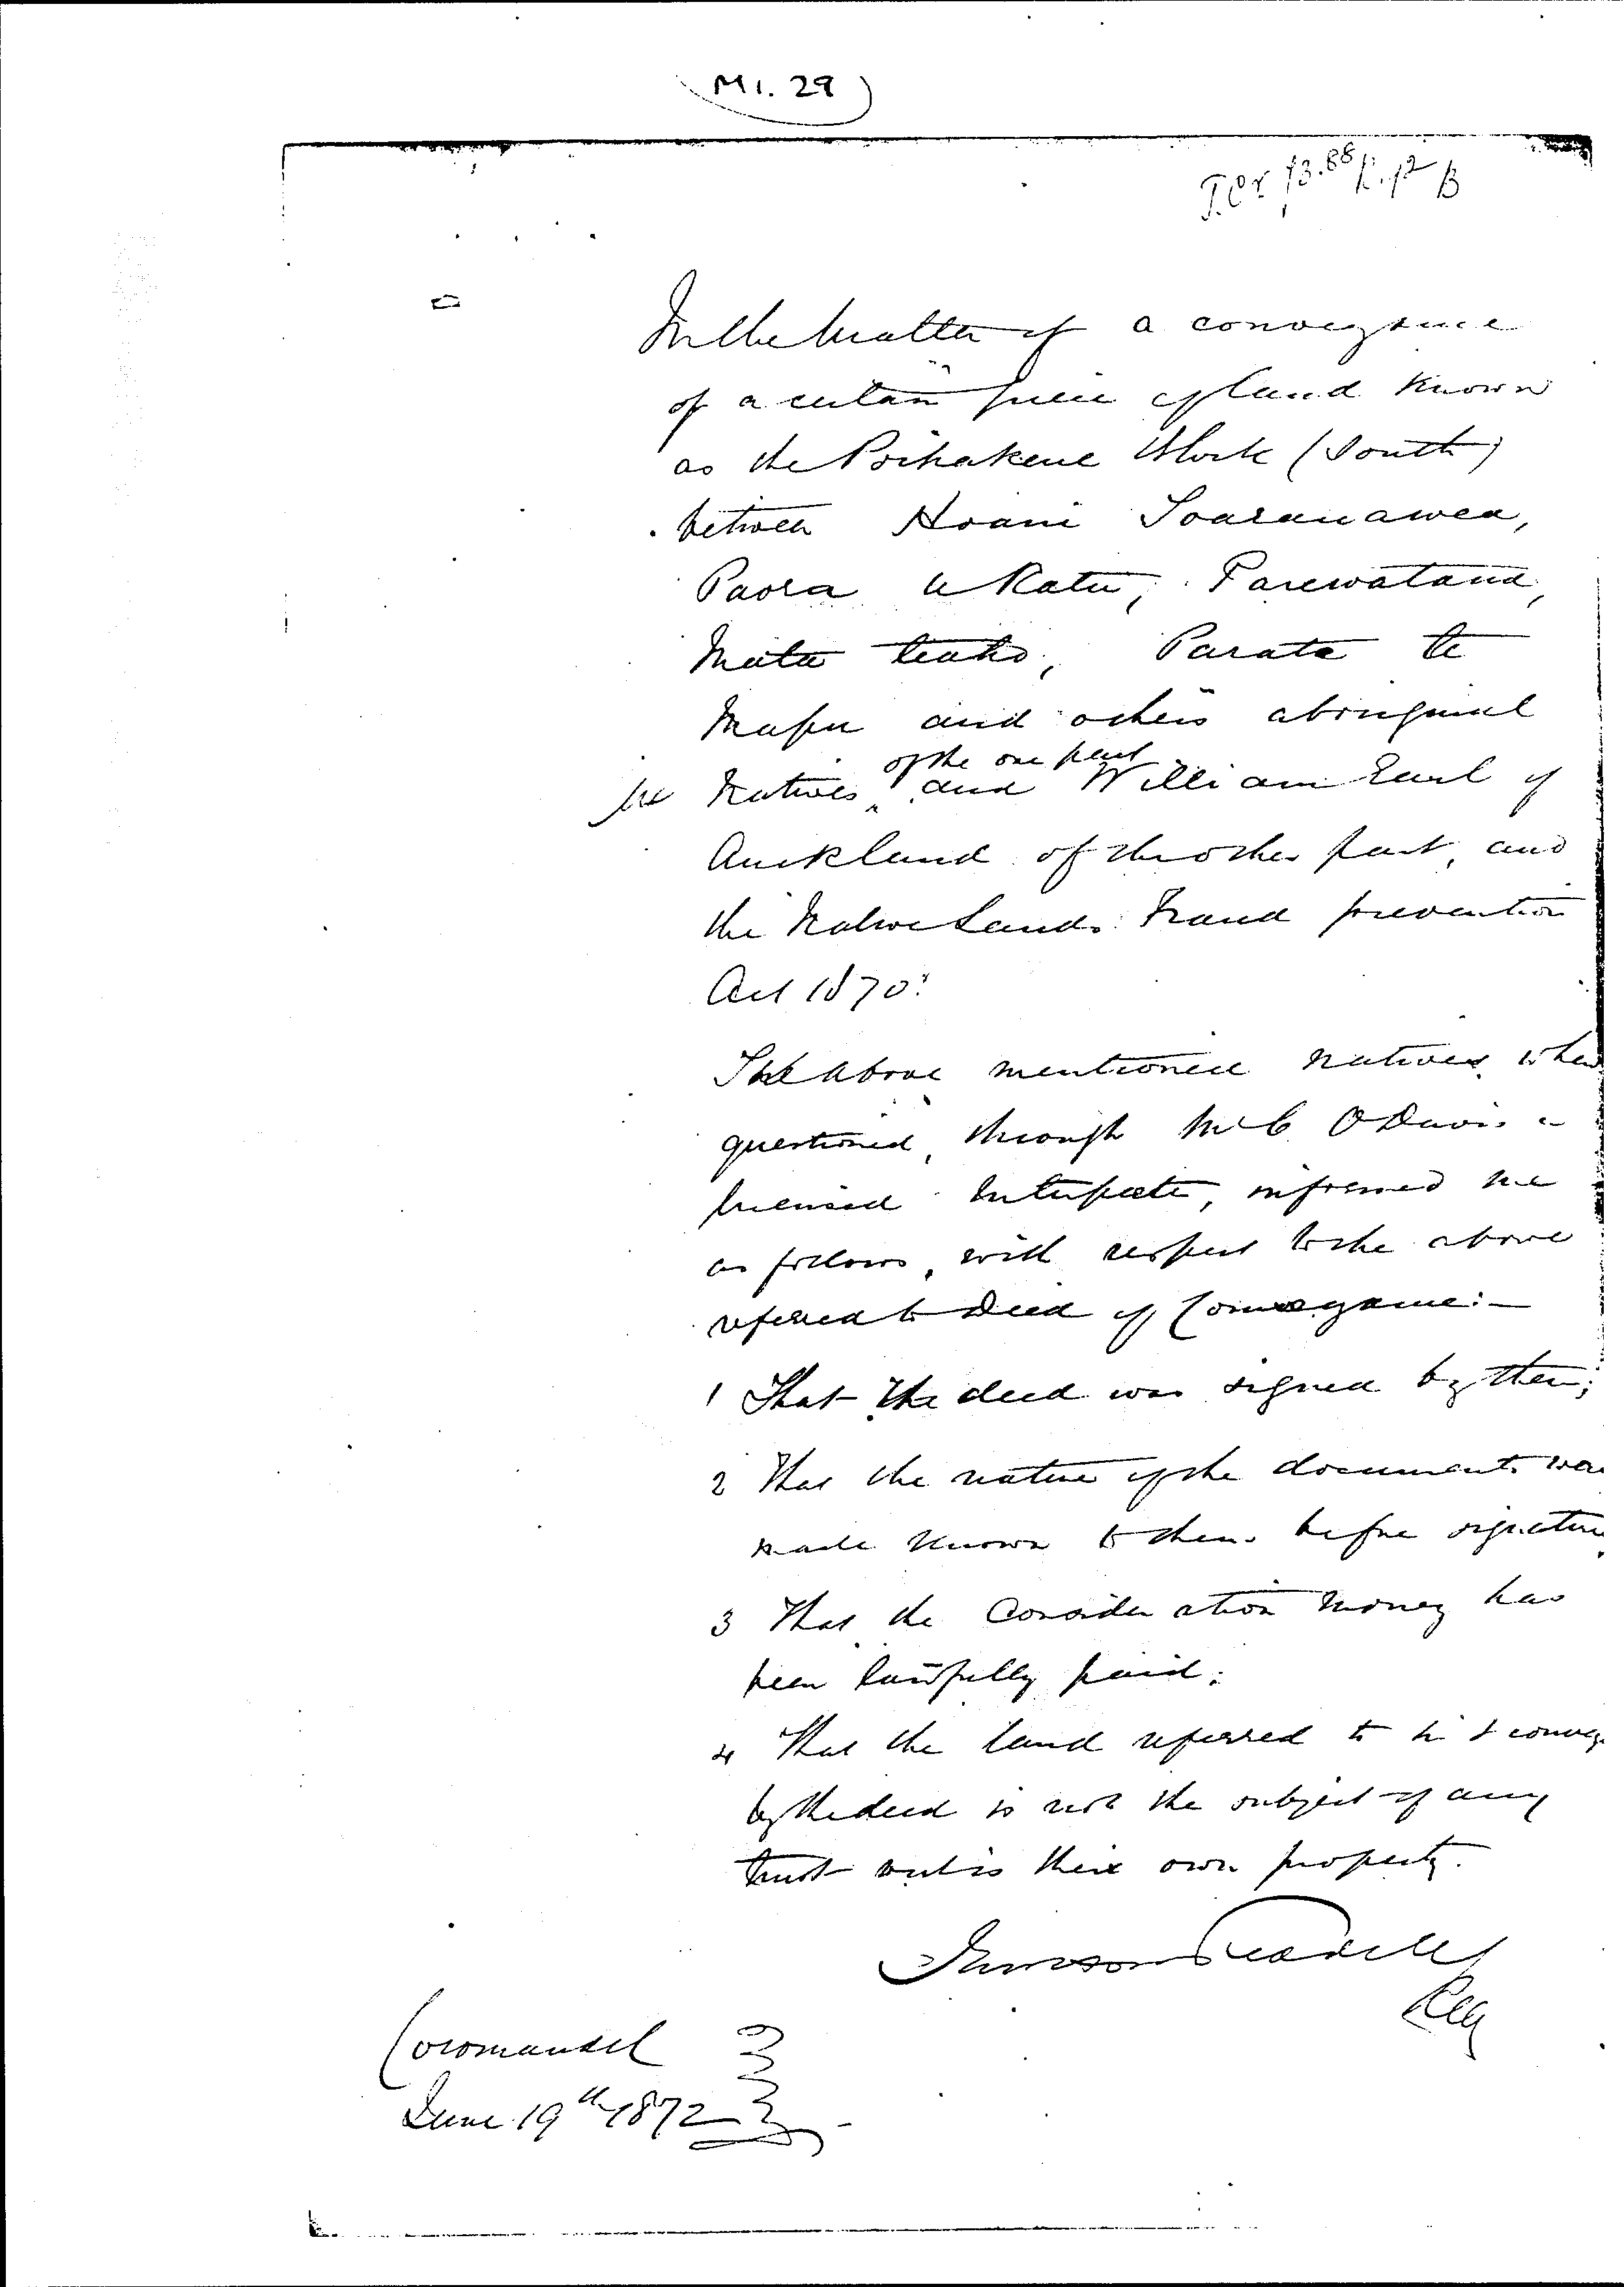 M1. 29
In the Matter of a conveyance
of a certain piece of land known
as the Poihakene Block (South)
between Hoani
Paora te Katu, Parewatana,
Mata teaho, Parata te
Mapu and others aboriginal
of the one part
Natives and William Earl of
Auckland of the other part, and
the Native Lands Fraud prevention
Act 1870:
The above mentioned natives when
questioned, through Mr C O Davis a
licensed Interpreter, informed me
as follows, with respect to the above
referred to Deed of Conveyance:—
1 That the deed was signed by them;
2 That the nature of the documents was
made known to them before signature
3 That the Consideration Money has
been lawfully paid;
4 That the land referred to in & convey
by the deed is not the subject of any
trust but is their own property.
Coromandel
June 19th 1872